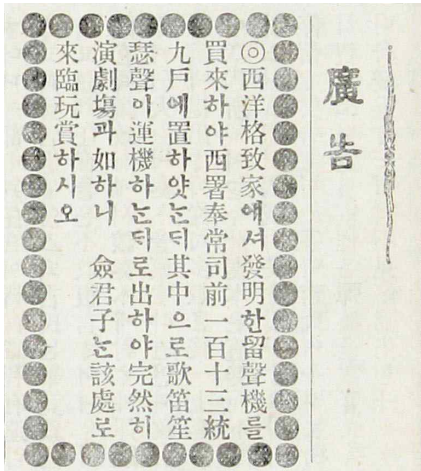 廣告
◎西洋格致家에셔發明한留聲機를
買來하야西署奉常司前一百十三統
九戶에置하얏ᄂᆞᆫᄃᆡ其中으로歌笛笙
瑟聲이運機하ᄂᆞᆫᄃᆡ로出하야完然히
演劇塲과如하니 僉君子ᄂᆞᆫ該處로
來臨玩賞하시오